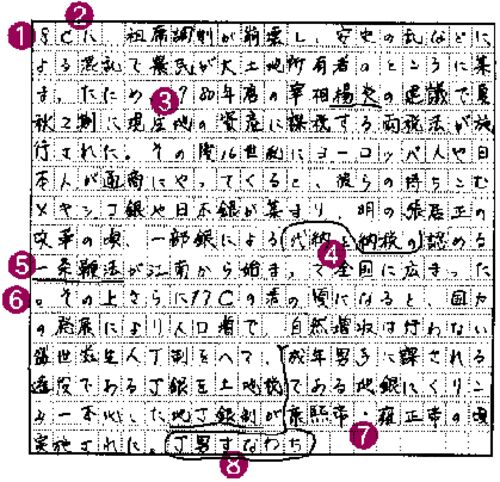 ❷
❶8Cに、租庸調制が崩壊し、安史の乱などに
よる混乱で農民が大土地所有者のところに集
まったため❸780年唐の宰相楊炎の建議で夏
秋2期に現住地の資産に課税する両税法が施
行された。その後16世紀にヨーロッパ人や日
本人が通商にやってくると、彼らの持ちこむ
メキシコ銀や日本銀が集まり、明の張居正の
改革の頃、一部銀による代納を納税の認める
❹
❺一条鞭法が江南から始まって全国に広まった
❻。その上さらに17Cの清の頃になると、国力
の発展により人口増で、自然増収は行わない
盛世滋生人丁制をへて、成年男子に課される
徭役である丁銀を土地税である地銀にくりこ
み一本化した地丁銀制が康熙帝・雍正帝の頃
実施された。丁男すなわち❼
❽